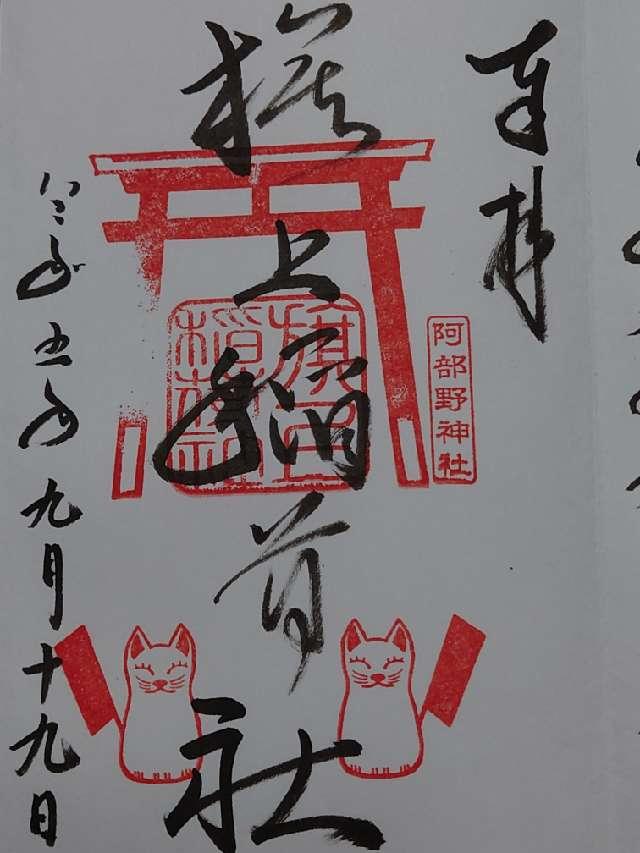 奉拝
旗上稲荷社
阿部野神社
旗上
稲荷社
令和五年九月十九日